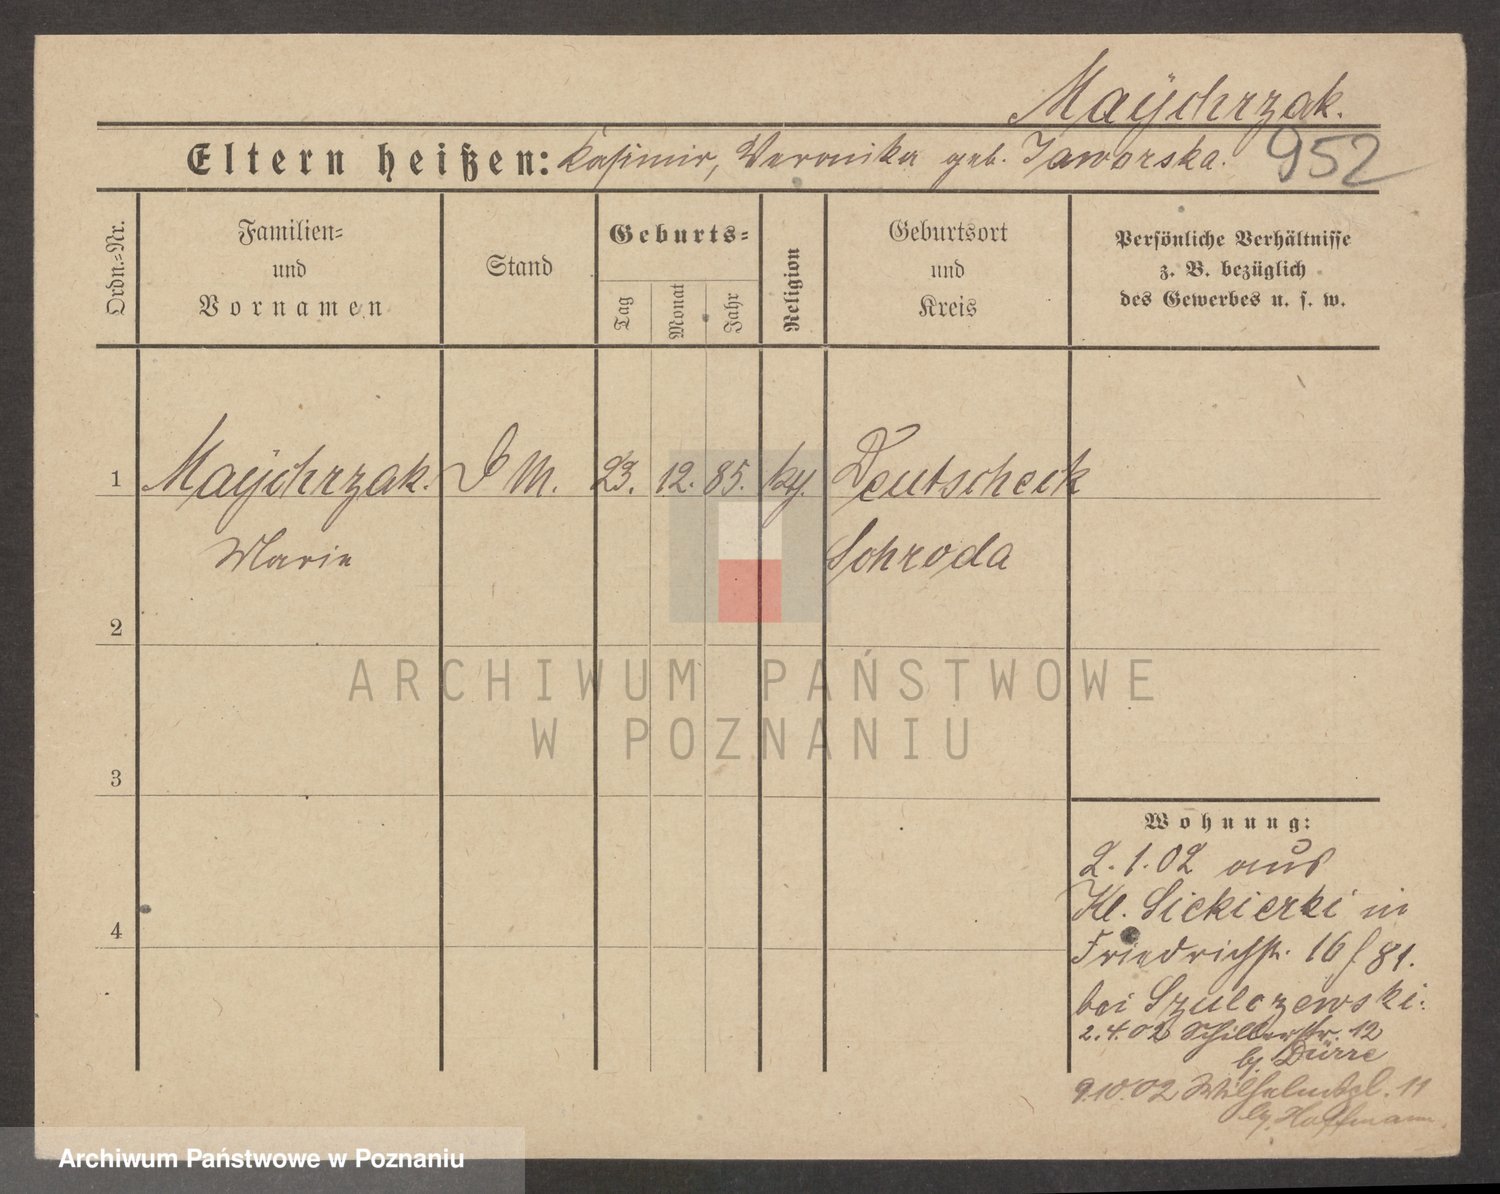 Maÿchrzak.
Eltern heißen: Kasimir, Veronika geb. Jaworska.
952
Ordn.-Nr.
Familien-
und
Vornamen
Stand
Geburts-
Tag
Monat
Jahr
Religion
Geburtsort
und
Kreis
Persönliche Verhältnisse
z. B. bezüglich
des Gewerbes u. s. w.
1 Maÿchrzak. D M. 23. 12. 85. Deutscheck
Marie Schroda
2
ARCHIWUM PAŃSTWOWE
W POZNANIU
3
Wohnung:
2.1.02 aus
Kl. Siekierki in
Friedrichstr. 16 / 81.
bei Szulczewski.
4
2.4.02 Schillerstr. 12
bei Dürre
9.10.02 Wilhelmspl. 11
Hoffmann.
Archiwum Państwowe w Poznaniu